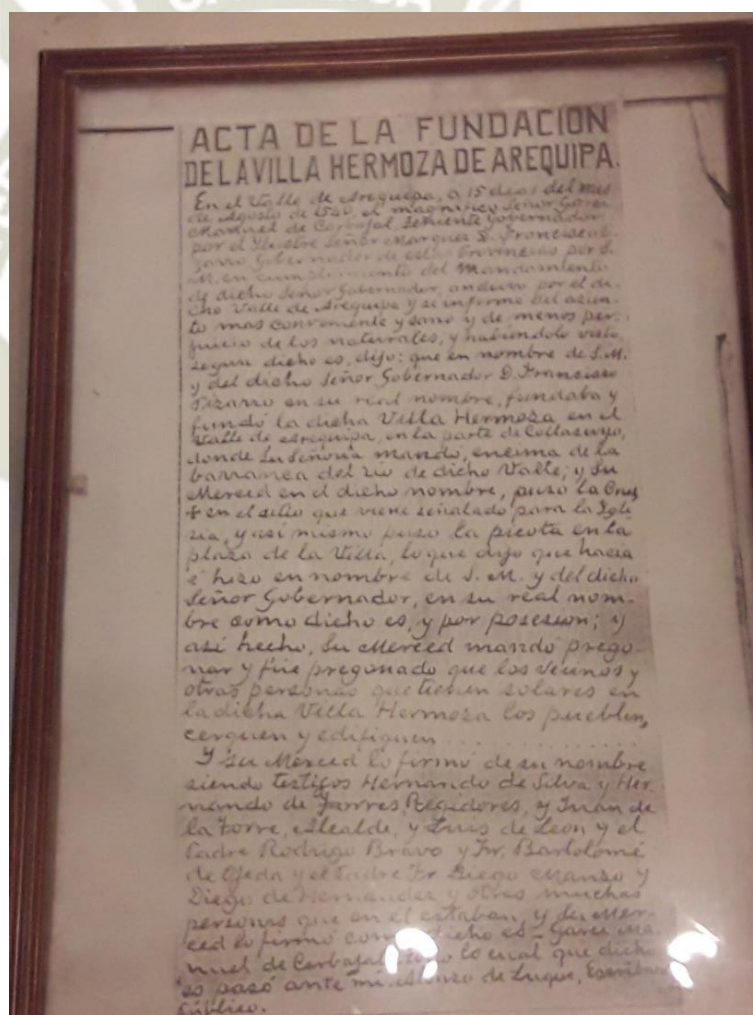 ACTA DE LA FUNDACION
DE LA VILLA HERMOZA DE AREQUIPA.
En el Valle de Arequipa, a 15 dias del mes
de Agosto de 1540, el magnifico Señor Garci
Manuel de Carbajal, Teniente Gobernador
por el Ilustre Señor Marques D. Francisco Pi-
zarro Gobernador de estas Provincias por S.
M. en cumplimiento del Mandamiento
de dicho Señor Gobernador, anduvo por el di-
cho Valle de Arequipa y se informo del asien-
to mas conveniente y sano y de menos per-
juicio de los naturales, y habiendolo visto,
segun dicho es, dijo: que en nombre de S.M.
y del dicho Señor Gobernador D. Francisco
Pizarro en su real nombre, fundaba y
fundó la dicha Villa Hermoza en el
Valle de Arequipa, en la parte de Collasuyo,
donde Su Señoria mando, encima de la
barranca del rio de dicho Valle; y Su
Merced en el dicho nombre, puso la Cruz
+ en el sitio que viene señalado para la Igle
sia, y asi mismo puso la picota en la
plaza de la Villa, lo que dijo que hacia
é hizo en nombre de S. M. y del dicho
Señor Gobernador, en su real nom-
bre como dicho es, y por posesion; y
asi hecho, Su Merced mandó prego-
nar y fue pregonado que los vecinos y
otras personas que tienen solares en
la dicha Villa Hermoza los pueblen,
cerquen y edifiquen . . . . . . . . . . . .
Y su Merced lo firmó de su nombre
siendo testigos Hernando de Silva y Her-
nando de Torres, Regidores, y Juan de
la Torre, Alcalde, y Luis de Leon y el
Padre Rodrigo Bravo y Fr. Bartolomé
de Ojeda y el Padre Fr Diego Manso y
Diego de Hernandez y otras muchas
personas que en el estaban, y Su Mer-
ced lo firmó como dicho es - Garci Ma-
nuel de Carbajal lo cual que dicho
es pasó ante mi. Alonso de Luque, Escribano
Público.